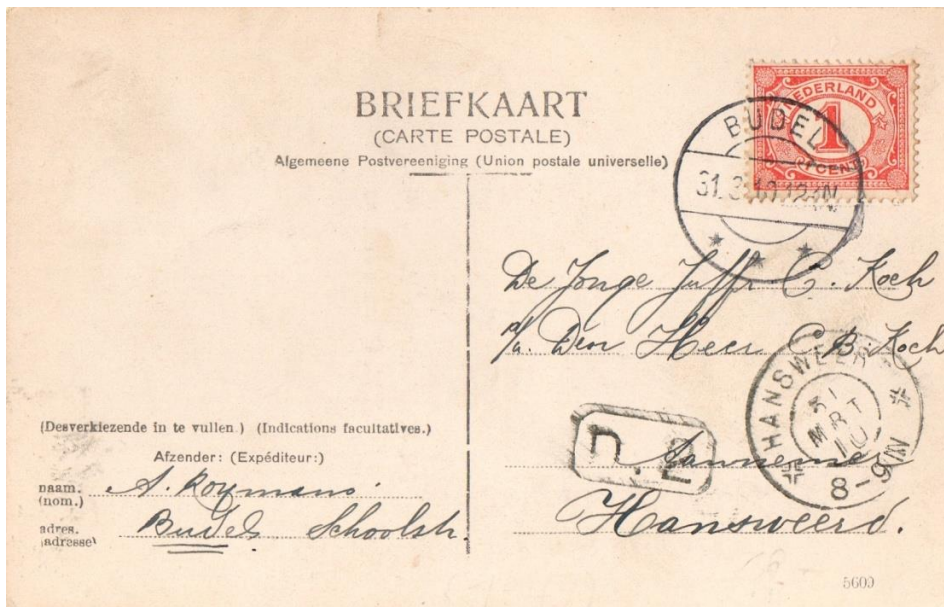 BRIEFKAART
(CARTE POSTALE)
Algemeene Postvereeniging (Union postale universelle)
NEDERLAND
1
CENT
BUDEL
31.3.10.12-1N
De Jonge Juffr. C. Koch
p/a. Den Heer C.B. Koch
HANSWEERT
31
MRT
10
8-9N
Aannemer
Hansweerd.
(Desverkiezende in te vullen.) (Indications facultatives.)
Afzender: (Expéditeur:)
naam. A. Roymans.
(nom.)
adres. Budel Schoolstr.
(adresse)
5609